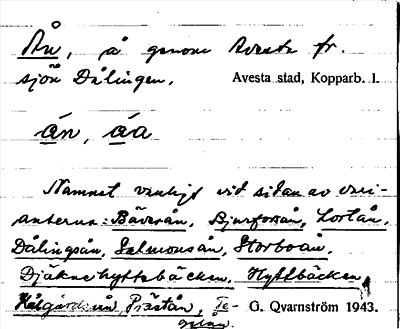 Ån, å genom Avesta fr.
sjön Dålingen. Avesta stad, Kopparb. l.
ån, åa
Namnet vanligt vid sidan av vari-
anterna: Bäversån, Bjursforsån, Lortån,
Dålingsån, Salmonsån, Storboån,
Djäknehyttebäcken, Hyttbäcken,
Kålgårdsån, Prästån, G. Qvarnström 1943.